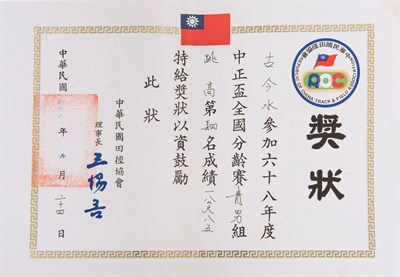 獎狀
中華民國田徑協會
ROC
REPUBLIC OF CHINA TRACK & FIELD ASSOCIATION
古今水參加六十八年度
中正盃全國分齡賽青男組
跳高第名成績一公尺八五
特給獎狀以資鼓勵
此狀
中華民國田徑協會
理事長 王惕吾
中華民國 年 月 二十四 日